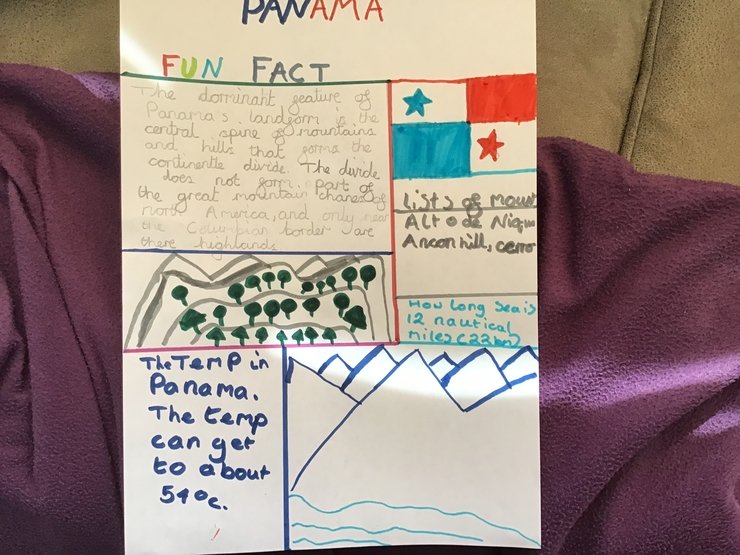 PANAMA
FUN FACT
The dorminant feature of
Panama's landform is the
central spine of mountains
and hills that forms the
continentle divide. The divide
does not form part of
the great mountain chanes of
north America, and only near
the Columbian border are
there highlands
Lists of mount
Alto de
Ancon hill, cerro
How Long Sea is
12 nautical
miles (22km)
The Temp in
Panama.
The temp
can get
to about
54°c.